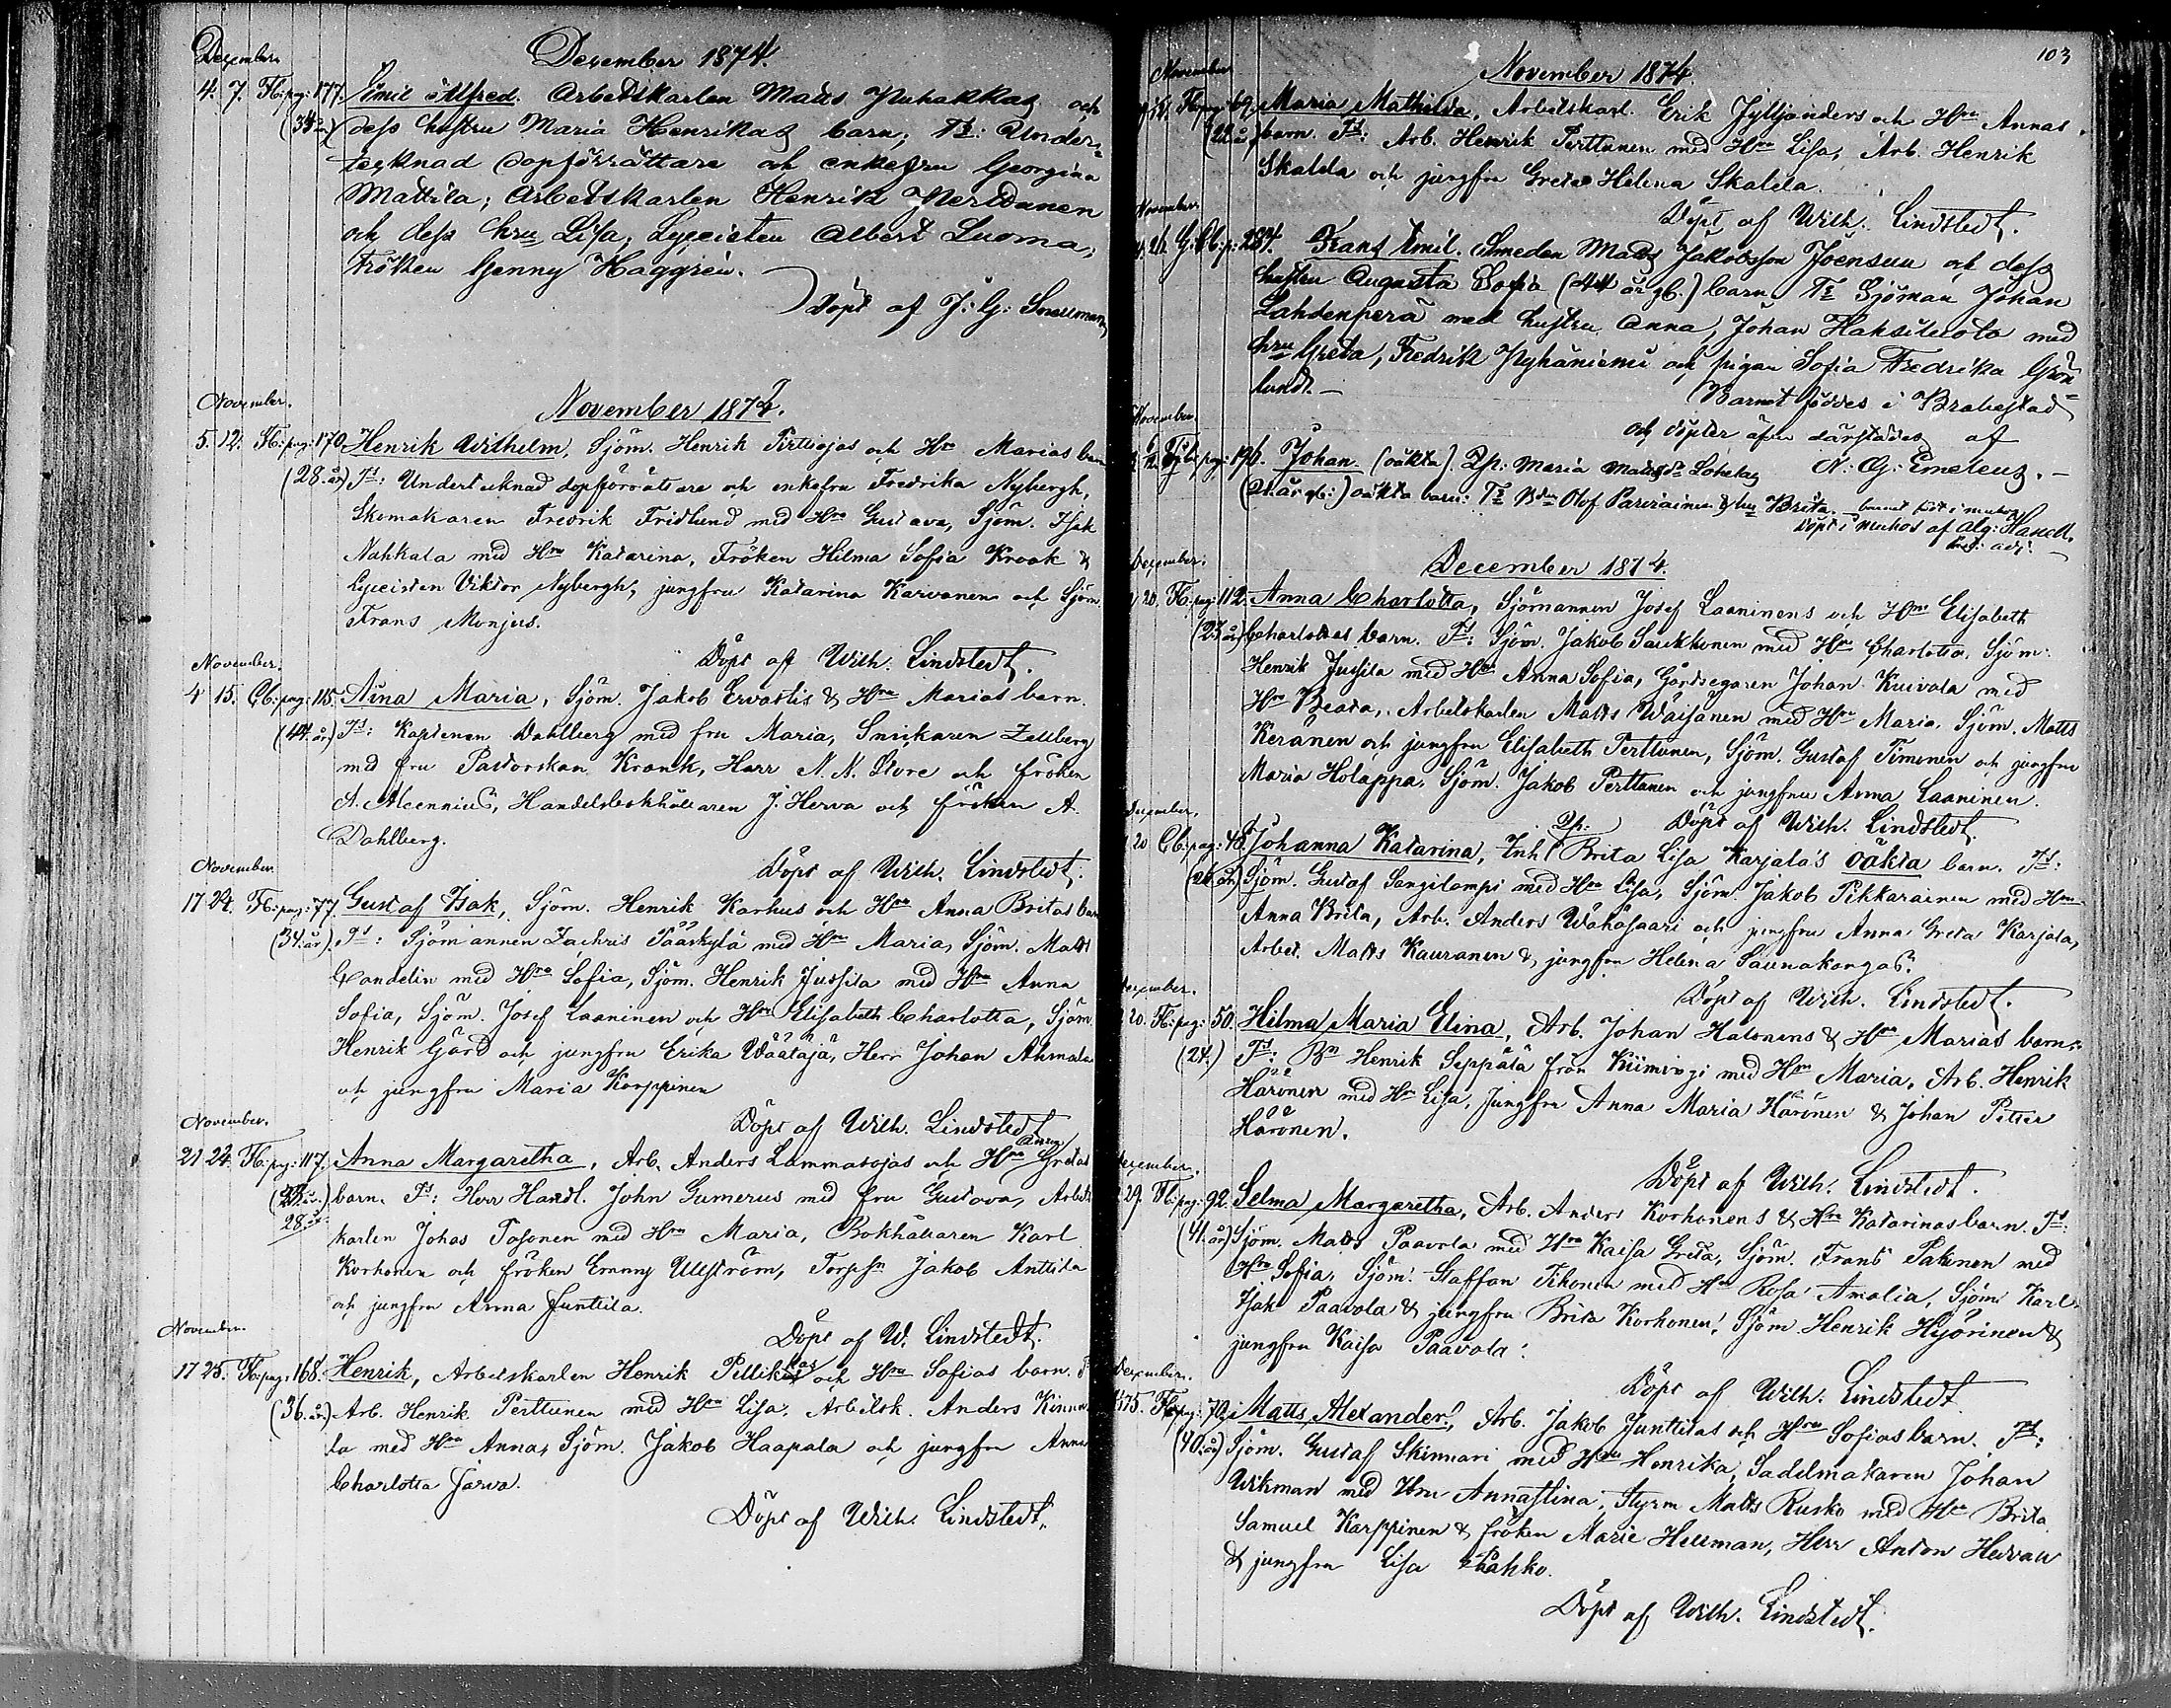 December
December 1874.
4. 7. Fb: pag: 177. Emil Alfred. Arbetskarlen Matts Juhakkas och
(34 år) dess hustru Maria Henrikas barn; Ts: Under-
tecknad dopförrättare och enkefru Georgina
Mattila; Arbetskarlen Henrik Pertdunen
och dess hru Lisa; Lyceisten Albert Luoma,
Fröken Jenny Häggrén.
Döpt af J: G: Snellman
November.
November 1874.
5. 12. Fb: pag: 170. Henrik Wilhelm, Sjöm. Henrik Pirttiojas och Hru Marias barn
(28. år) Ts: Undertecknad dopförrättare och enkefru Fredrika Nybergh,
Skomakaren Fredrik Fridlund med Hru Gustava, Sjöm. Isak
Nahkala med Hru Katarina, Fröken Hilma Sofia Krook &
Lyceisten Viktor Nybergh, jungfru Katarina Karvonen och Sjöm.
Frans Monjus.
Döpt af Wilh. Lindstedt.
November.
4 15. Cb: pag: 115. Aina Maria, Sjöm. Jakob Ervastis & Hru Marias barn.
(44. år) Ts: Kaptenen Dahlberg med fru Maria, Snickaren Zellberg
med fru Pastorskan Krank, Herr N. N. Dyre och fröken
A. Alcennius, Handelsbokhållaren J. Herva och fröken A.
Dahlberg.
Döpt af Wilh. Lindstedt.
November.
17 24. Fb: pag: 77. Gustaf Isak, Sjöm. Henrik Karhus och Hru Anna Britas barn
(34. år). Ts: Sjömannen Zachris Pääskylä med Hru Maria, Sjöm. Matts
Candelin med Hru Sofia, Sjöm. Henrik Jussila med Hru Anna
Sofia, Sjöm. Josef Laaninen och Hru Elisabeth Charlotta, Sjöm
Henrik Gård och jungfru Erika Wäätäjä, Herr Johan Ahmala
och jungfru Maria Karppinen
Döpt af Wilh. Lindstedt
November.
21 24. Fb: pag: 117. Anna Margaretha, Arb. Anders Lammasojas och Hru Anna Gretas
28 år. barn. Ts: Herr Handl. John Gumerus med fru Gustava, Arbets
karlen Johas Tasonen med Hru Maria, Bokhållaren Karl
Korhonen och fröken Emmy Ullström, Torpsn Jakob Anttila
och jungfru Anna Junttila.
Döpt af W. Lindstedt.
November.
17 25. Fb: pag: 168. Henrik, Arbetskarlen Henrik Pellikkas och Hru Sofias barn.
(36. år) Arb. Henrik Perttunen med Hru Lisa, Arbetsk. Anders Kinnu
la med Hru Anna, Sjöm. Jakob Haapala och jungfru Anna
Charlotta Jarva.
Döpt af Wilh. Lindstedt.
103
November
November 1874.
Fb: pag: 69. Maria Mathilda, Arbetskarl. Erik Jylljanders och Hru Annas
(22 år) barn. Ts: Arb. Henrik Perttunen med Hru Lisa, Arb. Henrik
Skalda och jungfru Greta Helena Skalda.
Döpt af Wilh. Lindstedt.
November
26. G. Cb: p: 284. Frans Emil. Smeden Matts Jakobsson Joensuu och dess
hustru Augusta Sofia (44 år gl.) barn. Ts Sjöman Johan
Lahdenperä med hustru Anna, Johan Haksiluoto med
hru Greta, Fredrik Pyhäniemi och pigan Sofia Fredrika Grön-
lund. —
Barnet föddes i Brahestad
och döptes äfven därstädes af
N: G: Emeleus. —
November
pag: 196. Johan. (oäkta) Qp: Maria Mattsdr Lohelas
(21 år gl:) oäkta barn: Ts Bdn Olof Pareiainen & hu Brita. barnet född i Muhos
Döpt i Muhos af Alg: Hanell,
pred: adj.
December.
December 1874.
20. Fb: pag: 112. Anna Charlotta, Sjömannen Josef Laaninens och Hru Elisabeth
(23. år) Charlottas barn. Ts: Sjöm. Jakob Saukkonen med Hru Charlotta. Sjöm:
Henrik Jussila med Hru Anna Sofia, Gårdsegaren Johan Kuivala med
Hru Beata, Arbetskarlen Matts Wäisänen med Hru Maria. Sjöm. Matts
Keränen och jungfru Elisabeth Perttunen, Sjöm. Gustaf Timonen och jungfru
Maria Holappa, Sjöm. Jakob Perttunen och jungfru Anna Laaninen.
Döpt af Wilh. Lindstedt.
December.
20 Cb: pag: 48. Johanna Katarina, Inh. Qp: Brita Lisa Karjala's oäkta barn. Ts:
(26 år) Sjöm. Gustaf Sangilampi med Hru Lisa, Sjöm. Jakob Pikkarainen med Hru
Anna Brita, Arb. Anders Wähäsaari och jungfru Anna Greta Karjala,
Arbet. Matts Kauranen & jungfru Helena Saunakangas.
Döpt af Wilh. Lindstedt.
December.
20. Fb: pag: 50. Hilma Maria Elina, Arb. Johan Halonens & Hru Marias barn.
(24.) Ts: Bn Henrik Seppälä från Kiimingi med Hru Maria, Arb. Henrik
Härönen med Hru Lisa, Jungfru Anna Maria Härönen & Johan Petter
Härönen.
Döpt af Wilh. Lindstedt.
December.
29. Fb: pag: 92. Selma Margaretha, Arb. Anders Korhonens & Hru Katarinas barn. Ts:
(41. år) Sjöm. Matts Paavola med Hru Kaisa Greta, Sjöm. Frans Pakinen med
Hru Sofia, Sjöm. Staffan Tikonen med Hru Rosa Amalia, Sjöm Karl
Isak Paavola & jungfru Brita Korhonen, Sjöm Henrik Hyörinen &
jungfru Kaisa Paavola.
Döpt af Wilh. Lindstedt
December.
Fb: pag: 72. Matts Alexander, Arb. Jakob Junttilas och Hru Sofias barn. Ts:
(40. år) Sjöm. Gustaf Skinnari med Hru Henrika, Sadelmakaren Johan
Wikman med Hru Annastina, Styrm Matts Rusko med Hru Brita
Samuel Karppinen & fröken Marie Hellman, Herr Anton Hedvall
& jungfru Lisa Pahko.
Döpt af Wilh. Lindstedt.